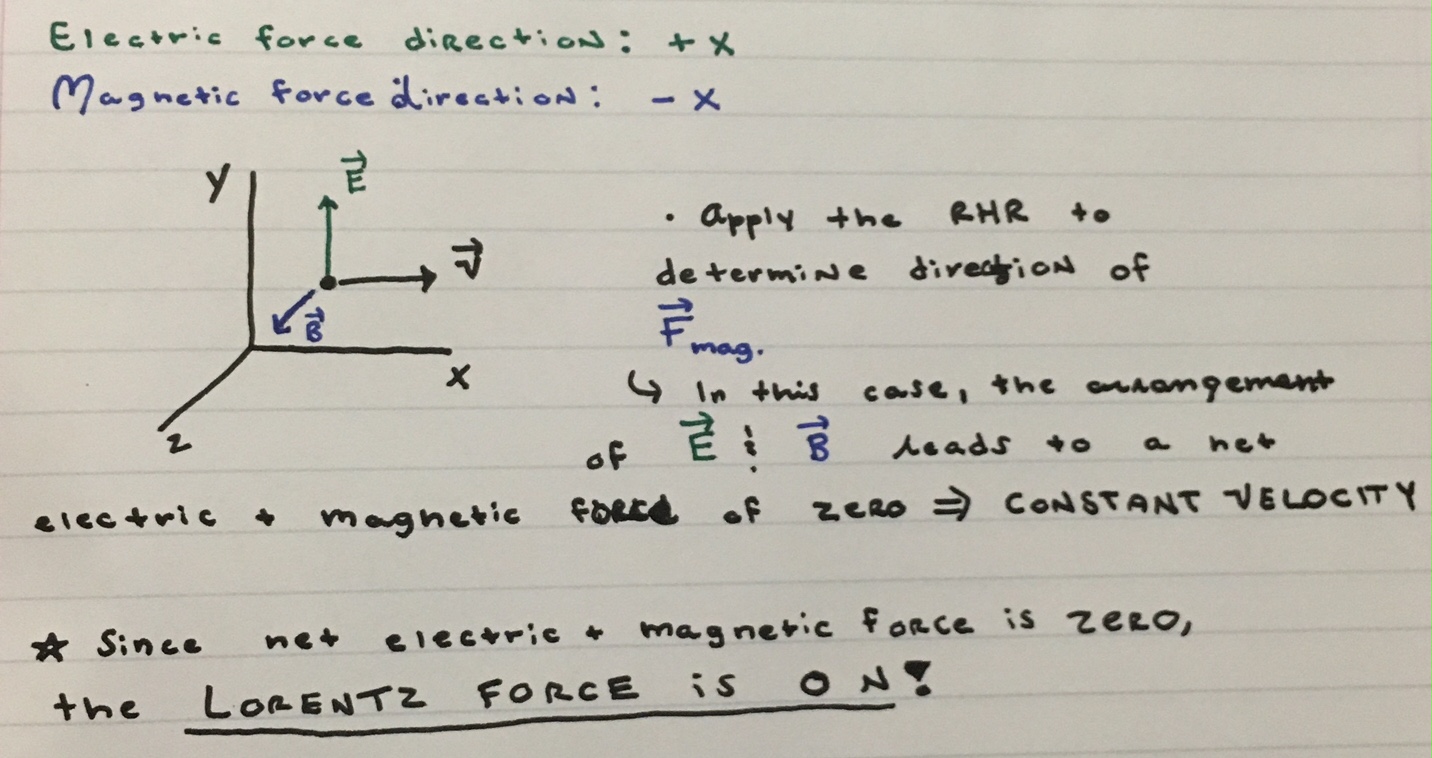 Electric force direction: + x
Magnetic force direction: - x
y
E
v
B
x
z
· apply the RHR to
determine direction of
F mag.
↳ In this case, the arrangement
of E & B leads to a net
electric + magnetic force of zero ⇒ CONSTANT VELOCITY
☆ Since net electric + magnetic force is zero,
the LORENTZ FORCE is 0 N!